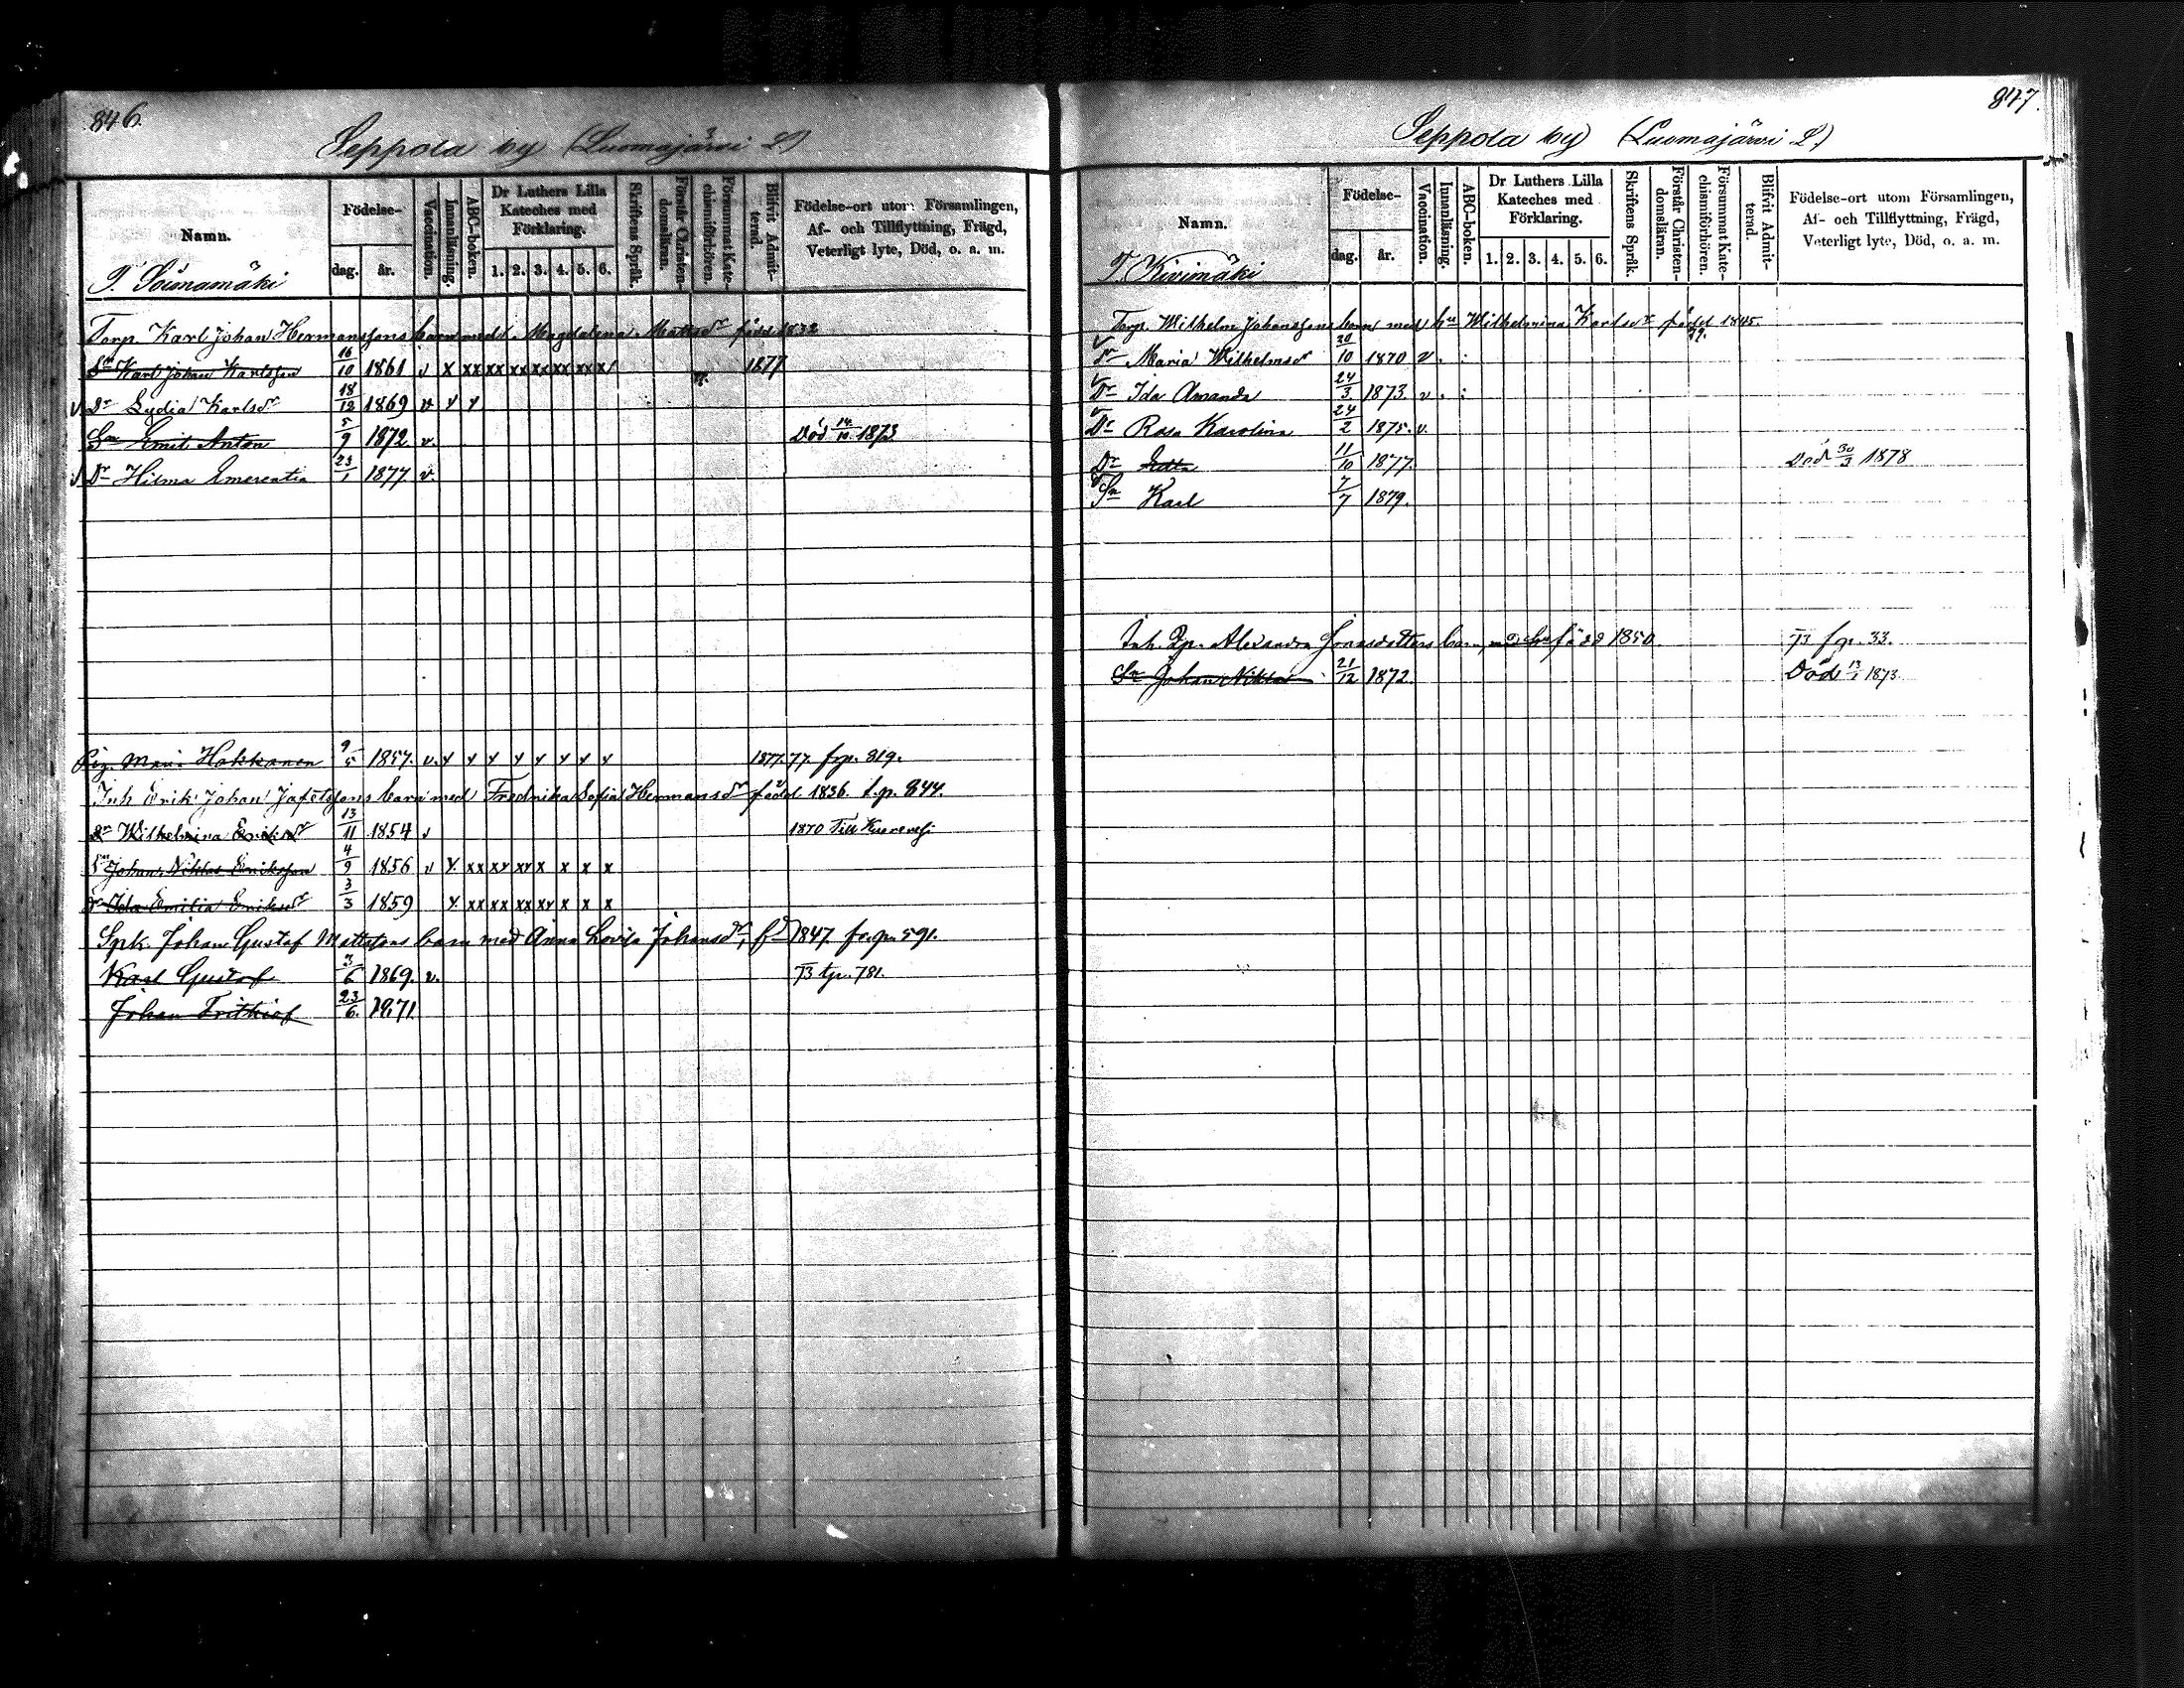 846.
Seppola by (Luomajärvi L)
Namn.
Födelse-
dag.
år.
Vaccination.
Innanläsning.
ABC-boken.
Dr Luthers Lilla Kateches med Förklaring.
1. 2. 3. 4. 5. 6.
Skriftens Språk.
Förstår Christen-domsläran.
Försummat Kate-chismiförhören.
Blifvit Admit-terad.
Födelse-ort utom Församlingen, Af- och Tillflyttning, Frägd, Veterligt lyte, Död, o. a. m.
T. Söunamäki
Torp. Karl Johan Hermanssons barn med Magdalena Mattsdr född 1832
Sn Karl Johan Karlsson 16/10 1861 v x xx xx xx xx xx xx x/ 1877
v Dr Lydia Karlsdr 18/12 1869 v y y
Sn Emil Anton 5/9 1872 v. Död 14/10 1873
v Dr Hilma Emerentia 23/1 1877 v.
Pig. Maria Hakkanen 9/5 1857. v. y y y y y y y y 1877. 77. frp. 819.
Inh Erik Johan Jafetssons barn med Fredrika Sofia Hermansdr född 1836. t.p. 844.
Dr Wilhelmina Eriksdr 13/11 1854 v 1870 Till
Sn Johan Niklas Eriksson 4/9 1856 v y. xx xy xy x x x x
Dr Ida Emilia Eriksdr 3/3 1859 y xx xx xx xy x x x
Spk. Johan Gustaf Mattssons barn med Anna Lovisa Johansdr, fd 1847. fr.p. 591.
Karl Gustaf 3/6 1869. v. 73 tp. 781.
Johan Frithiof 23/6. 1871
847.
Seppola by (Luomajärvi L.)
Namn.
Födelse-
dag.
år.
Vaccination.
Innanläsning.
ABC-boken.
Dr Luthers Lilla Kateches med Förklaring.
1. 2. 3. 4. 5. 6.
Skriftens Språk.
Förstår Christen-domsläran.
Försummat Kate-chismiförhören.
Blifvit Admit-terad.
Födelse-ort utom Församlingen, Af- och Tillflyttning, Frägd, Veterligt lyte, Död, o. a. m.
T. Kivimäki
Torp. Wilhelm Johanssons barn med hu Wilhelmina Karlsdr född 1845.
Dr Maria Wilhelmsdr 20/10 1870 v.
Dr Ida Amanda 24/3 1873. v.
Dr Rosa Karolina 24/2 1875. v.
Dr Edla 11/10 1877. Död 30/3 1878
Sn Karl 7/7 1879.
Inh. Qp. Alexandra Jonasdotters barn, född 1850. 73 frp. 33.
Sn Johan Niklas 21/12 1872. Död 13/1 1873.